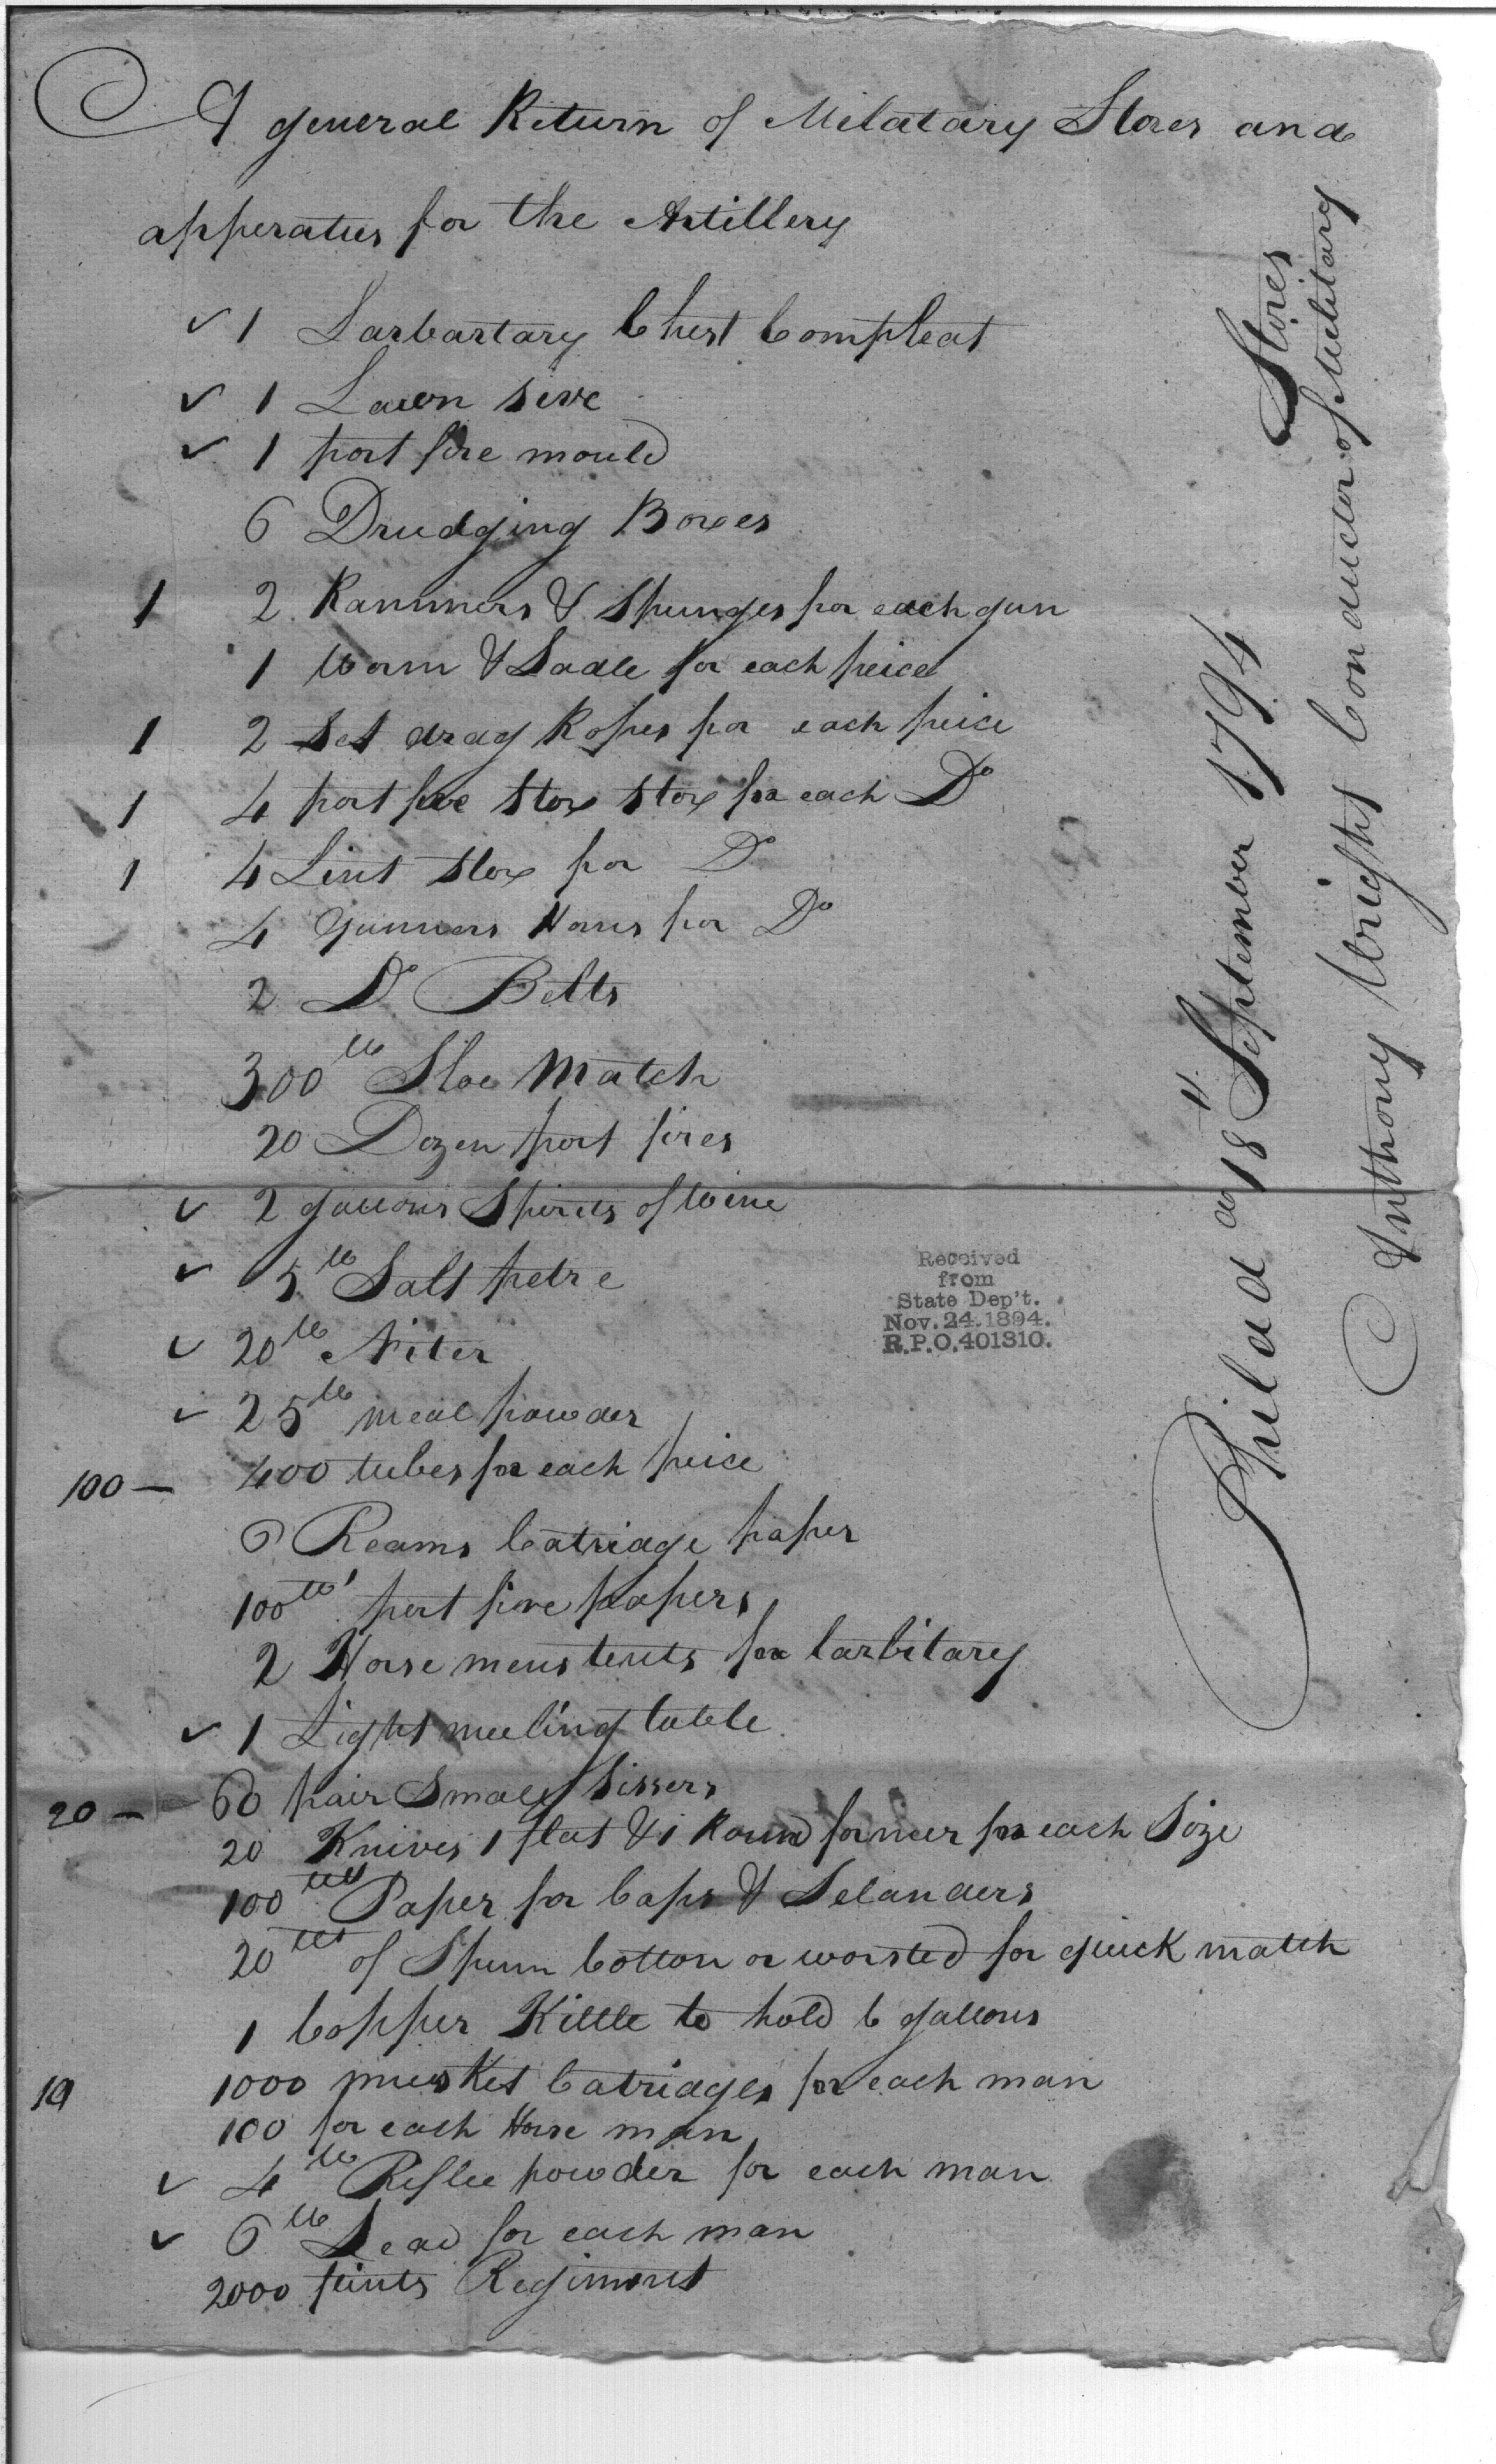 A general Return of Milatary Stores and
apperatus for the Artillery
✓ 1 Larbartary Chest Compleat
✓ 1 Lawn sive
✓ 1 port fire mould
6 Drudging Boxes
1 2 Rammers & Spunges for each gun
1 Worm & Ladle for each peice
1 2 Set drag Ropes for each peice
1 4 port fire Stox Stox for each Do
1 4 Lint Stox for Do
4 Gunners Horns for Do
2 Do Belts
300 lb Sloe Match
20 Dozen port fires
✓ 2 gallons Spirits of Wine
✓ 5 lb Salt petre
✓ 20 lb Niter
✓ 25 lb meal powder
100 — 400 tubes for each peice
6 Reams Catriage paper
100 lb port fire papers
2 Horse mens tents for Larbitary
✓ 1 Light meeling table
20 — 60 pair Small Sissers
20 Knives 1 flat & 1 Round former for each Size
100 lb Paper for Caps & Selanders
20 lb of Spun Cotton or worsted for quick match
1 Copper Kittle to hold 6 gallons
10 1000 musket Catriages for each man
100 for each Horse man
✓ 4 lb Riflee powder for each man
✓ 6 lb Lead for each man
2000 flints Regiment
Philad a 18th September 1794
Anthony Wright Conductor of Militarry
Stores
Received
from
State Dep't.
Nov.24.1894.
R.P.O.401310.